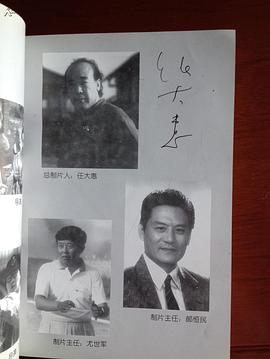 任
大
惠
总制片人：任大惠
制片主任：郝恒民
制片主任：尤世军